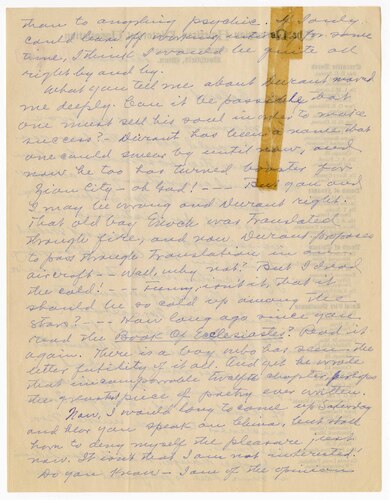 than to anything psychic. If I only
could lean off working so hard for some
time, I think I would be quite all
right by and by.
What you tell me about Durant moved
me deeply. Can it be possible that
one must sell his soul in order to make
success? - Durant has been a name that
one could swear by until now, and
now he too has turned booster for
Zion City - oh God! - - - But you and
I may be wrong and Durant right.
That old boy Enock was translated
through fire, and now Durant proposes
to pass through translation in an
aircraft - - Well, why not? But I dread
the cold! - - - Funny, isn't it, that it
should be so cold up among the
stars? - - - How long ago since you
read the Book Of Ecclesiastes? Read it
again. There is a boy who has seen the
utter futility of it all. And yet he wrote
that incomparable twelfth chapter, perhaps
the greatest piece of poetry ever written.
Now, I would long to come up Saturday
and hear you speak on China, but shall
have to deny myself the pleasure just
now. It isn't that I am not interested.
Do you know - I am of the opinion